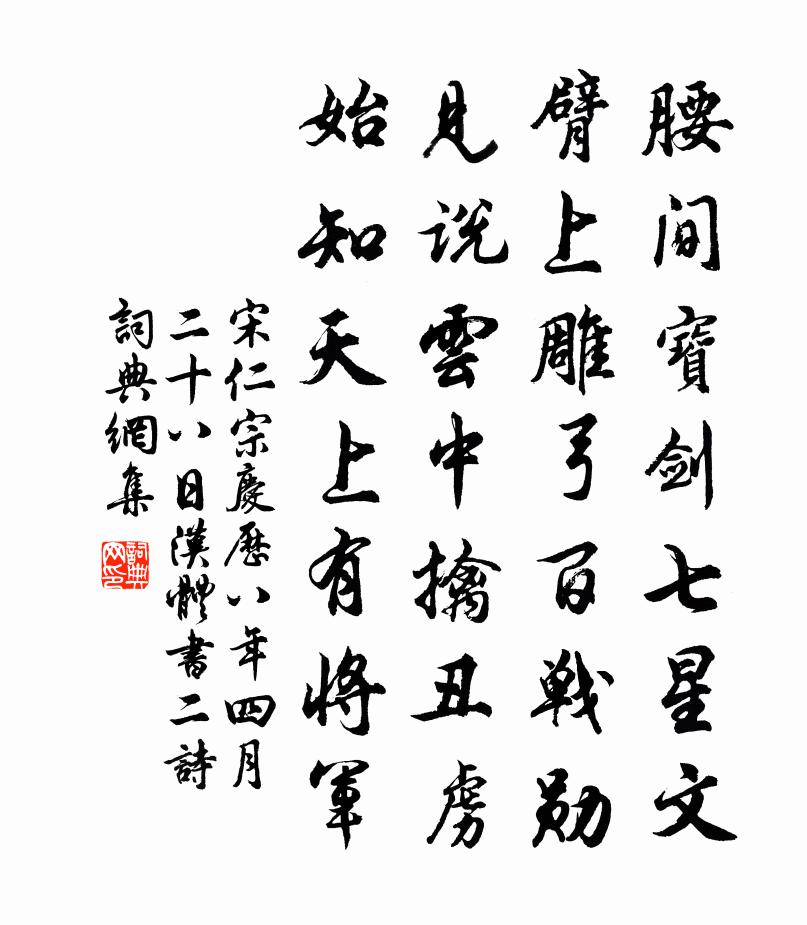 腰間寶劍七星文
臂上雕弓百戰勛
見說雲中擒丑虜
始知天上有將軍
宋仁宗慶歷八年四月
二十八日漢體書二詩
詞典網集
詞典网印